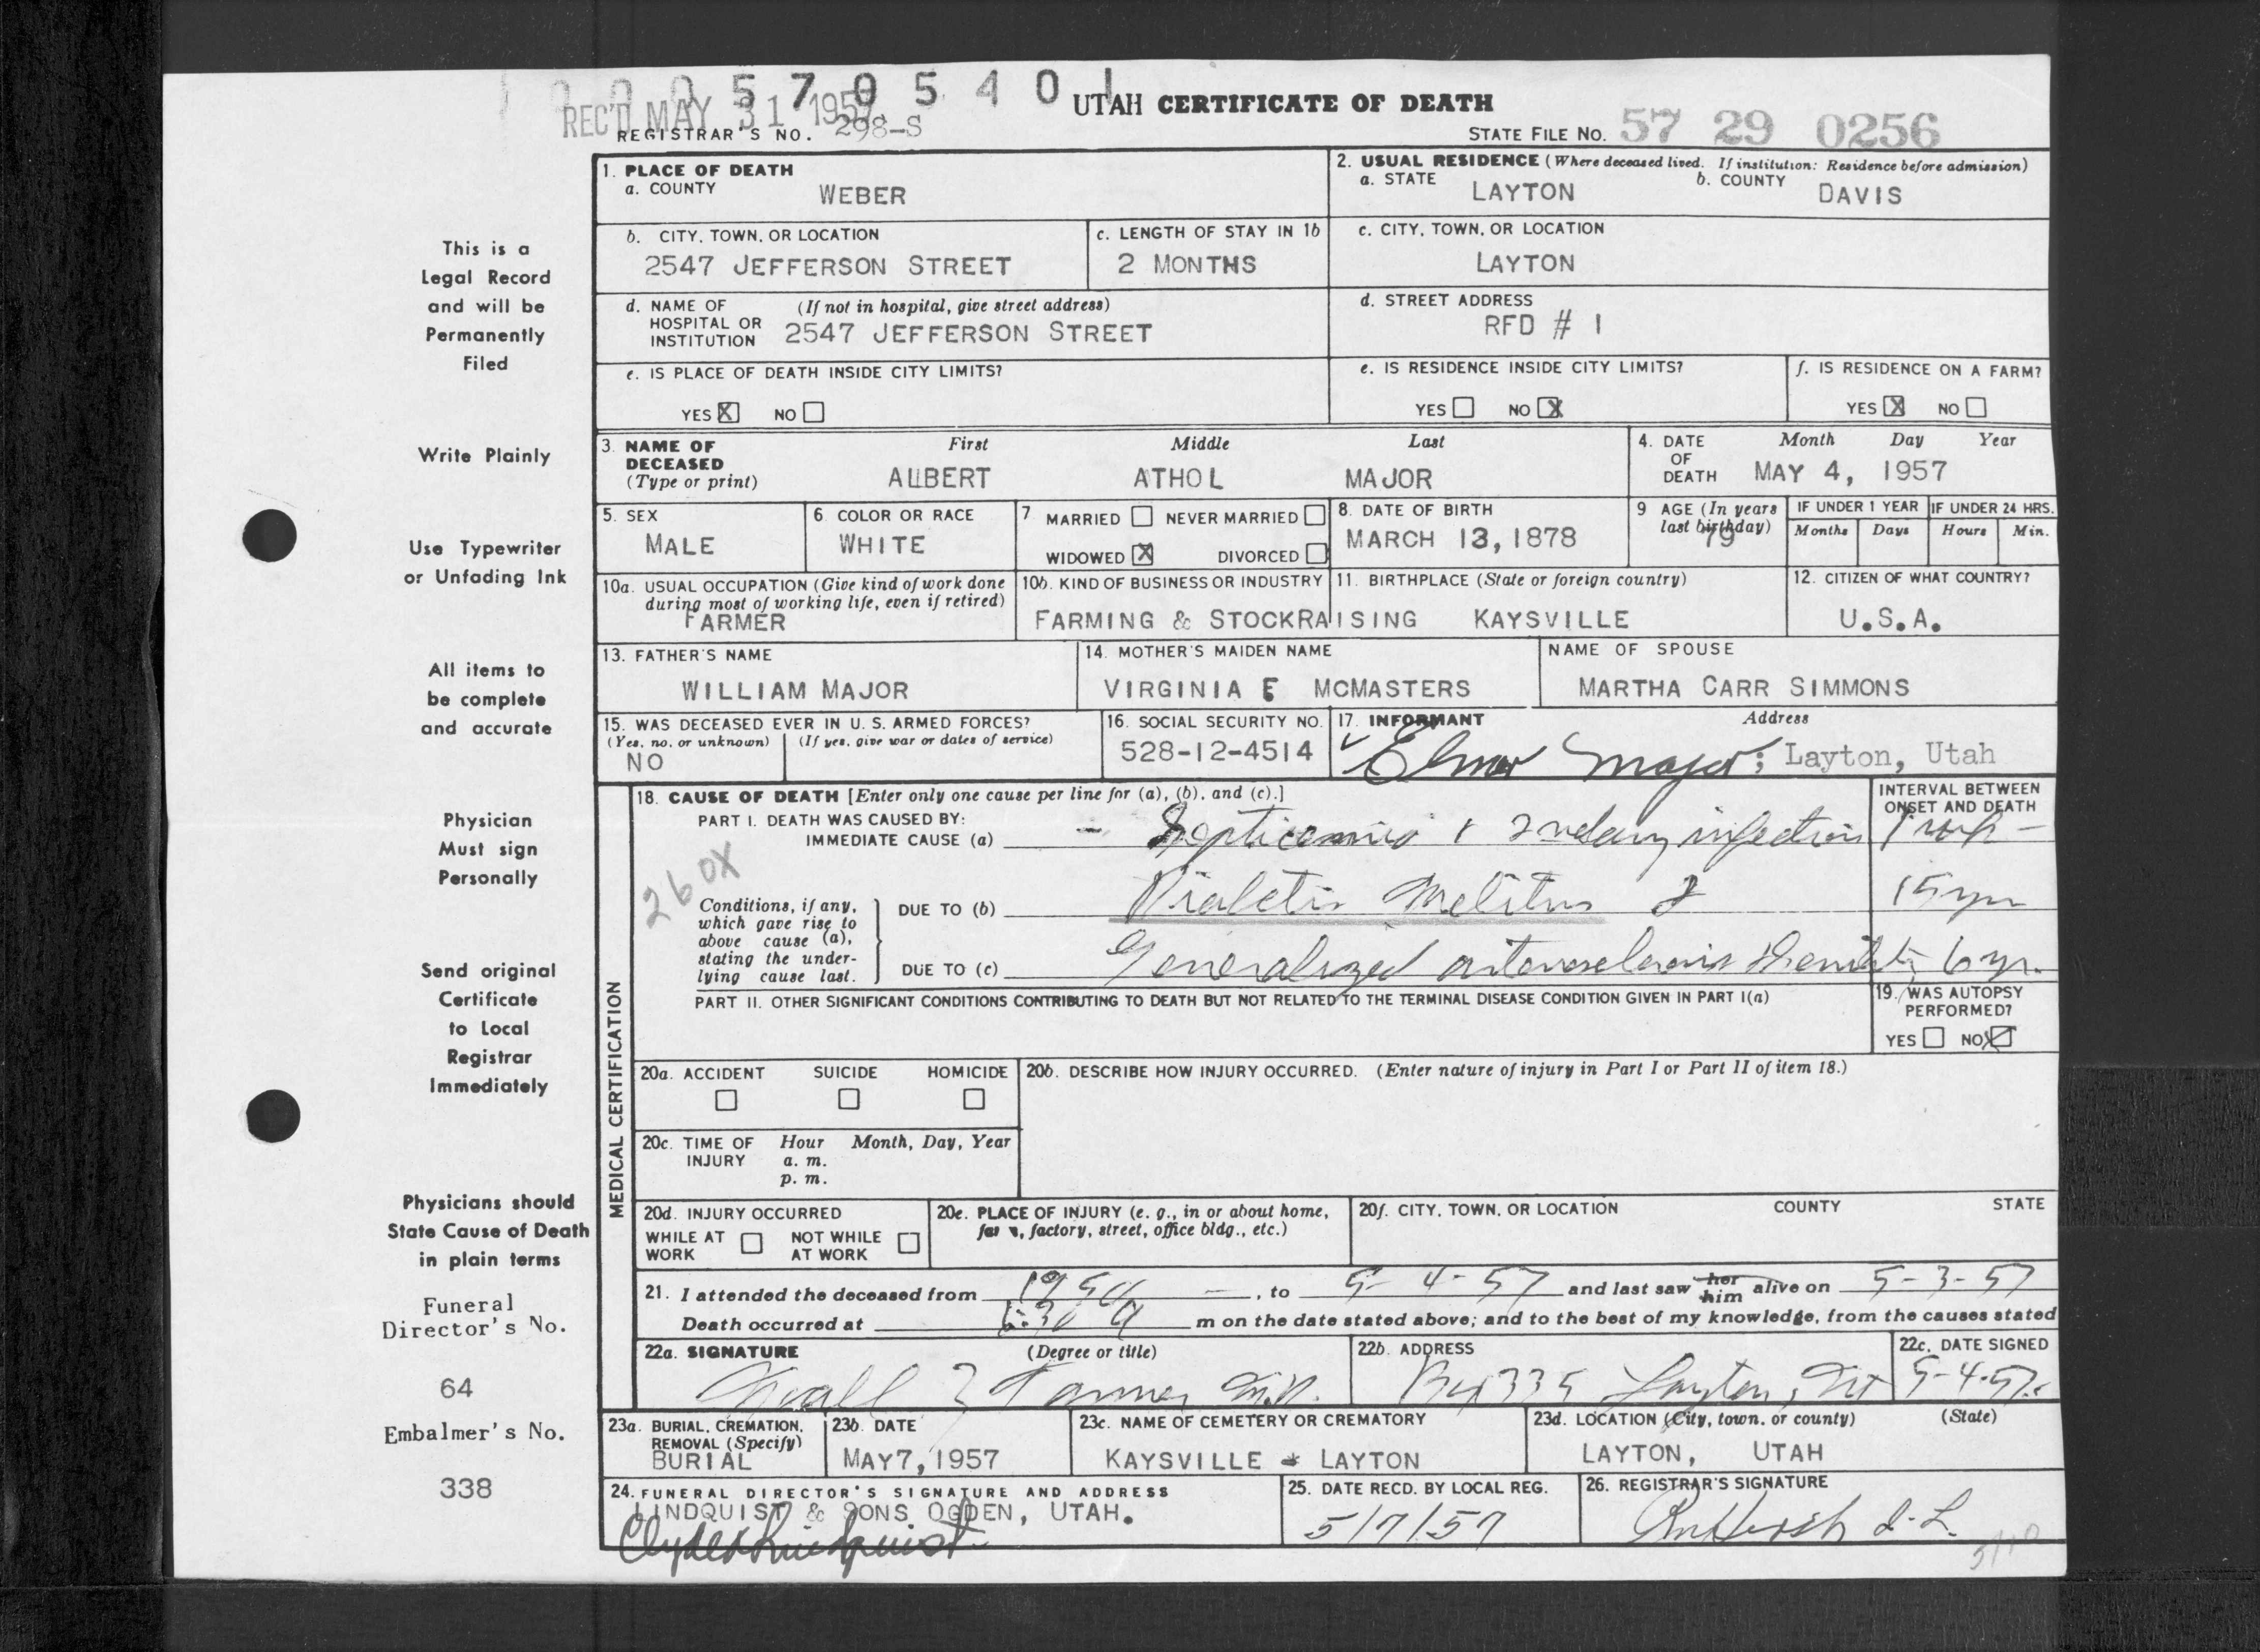 5 7 0 5 4 0 1
REC'D MAY 31 1957
UTAH CERTIFICATE OF DEATH
REGISTRAR'S NO. 298-S
STATE FILE NO. 57 29 0256
This is a
Legal Record
and will be
Permanently
Filed
Write Plainly
Use Typewriter
or Unfading Ink
All items to
be complete
and accurate
Physician
Must sign
Personally
Send original
Certificate
to Local
Registrar
Immediately
Physicians should
State Cause of Death
in plain terms
Funeral
Director's No.
64
Embalmer's No.
338
1. PLACE OF DEATH
a. COUNTY WEBER
2. USUAL RESIDENCE (Where deceased lived. If institution: Residence before admission)
a. STATE LAYTON b. COUNTY DAVIS
b. CITY, TOWN, OR LOCATION
2547 JEFFERSON STREET
c. LENGTH OF STAY IN 1b
2 MONTHS
c. CITY, TOWN, OR LOCATION
LAYTON
d. NAME OF (If not in hospital, give street address)
HOSPITAL OR
INSTITUTION 2547 JEFFERSON STREET
d. STREET ADDRESS
RFD # 1
e. IS PLACE OF DEATH INSIDE CITY LIMITS?
YES X NO
e. IS RESIDENCE INSIDE CITY LIMITS?
YES NO X
f. IS RESIDENCE ON A FARM?
YES X NO
3. NAME OF DECEASED (Type or print)
First Middle Last
ALBERT ATHOL MAJOR
4. DATE OF DEATH Month Day Year
MAY 4, 1957
5. SEX
MALE
6 COLOR OR RACE
WHITE
7 MARRIED NEVER MARRIED
WIDOWED X DIVORCED
8. DATE OF BIRTH
MARCH 13, 1878
9 AGE (In years
last birthday)
79
IF UNDER 1 YEAR IF UNDER 24 HRS.
Months Days Hours Min.
10a. USUAL OCCUPATION (Give kind of work done
during most of working life, even if retired)
FARMER
10b. KIND OF BUSINESS OR INDUSTRY
FARMING & STOCKRAISING
11. BIRTHPLACE (State or foreign country)
KAYSVILLE
12. CITIZEN OF WHAT COUNTRY?
U.S.A.
13. FATHER'S NAME
WILLIAM MAJOR
14. MOTHER'S MAIDEN NAME
VIRGINIA E MCMASTERS
NAME OF SPOUSE
MARTHA CARR SIMMONS
15. WAS DECEASED EVER IN U. S. ARMED FORCES?
(Yes, no, or unknown) (If yes, give war or dates of service)
NO
16. SOCIAL SECURITY NO.
528-12-4514
17. INFORMANT Address
Elmer Major; Layton, Utah
MEDICAL CERTIFICATION
18. CAUSE OF DEATH [Enter only one cause per line for (a), (b), and (c).]
INTERVAL BETWEEN
ONSET AND DEATH
PART I. DEATH WAS CAUSED BY:
IMMEDIATE CAUSE (a) - Septicemia & 2ndary infection 1 wk -
260X
Conditions, if any,
which gave rise to
above cause (a),
stating the under-
lying cause last.
DUE TO (b) Diabetis Melitus 15 yrs
DUE TO (c) Generalized arteriosclerosis & senility 6 yr.
PART II. OTHER SIGNIFICANT CONDITIONS CONTRIBUTING TO DEATH BUT NOT RELATED TO THE TERMINAL DISEASE CONDITION GIVEN IN PART I(a)
19. WAS AUTOPSY
PERFORMED?
YES NO X
20a. ACCIDENT SUICIDE HOMICIDE
20b. DESCRIBE HOW INJURY OCCURRED. (Enter nature of injury in Part I or Part II of item 18.)
20c. TIME OF INJURY Hour Month, Day, Year
a. m.
p. m.
20d. INJURY OCCURRED
WHILE AT WORK NOT WHILE AT WORK
20e. PLACE OF INJURY (e. g., in or about home,
farm, factory, street, office bldg., etc.)
20f. CITY, TOWN, OR LOCATION COUNTY STATE
21. I attended the deceased from 1950 -, to 5-4-57 and last saw her him alive on 5-3-57
Death occurred at 6:30 a m on the date stated above; and to the best of my knowledge, from the causes stated
22a. SIGNATURE (Degree or title)
Tanner M.D.
22b. ADDRESS
Box 335 Layton, Ut
22c. DATE SIGNED
5-4-57
23a. BURIAL, CREMATION,
REMOVAL (Specify)
BURIAL
23b. DATE
MAY 7, 1957
23c. NAME OF CEMETERY OR CREMATORY
KAYSVILLE & LAYTON
23d. LOCATION (City, town, or county) (State)
LAYTON, UTAH
24. FUNERAL DIRECTOR'S SIGNATURE AND ADDRESS
LINDQUIST & SONS OGDEN, UTAH.
Clyde Lindquist
25. DATE RECD. BY LOCAL REG.
5/7/57
26. REGISTRAR'S SIGNATURE